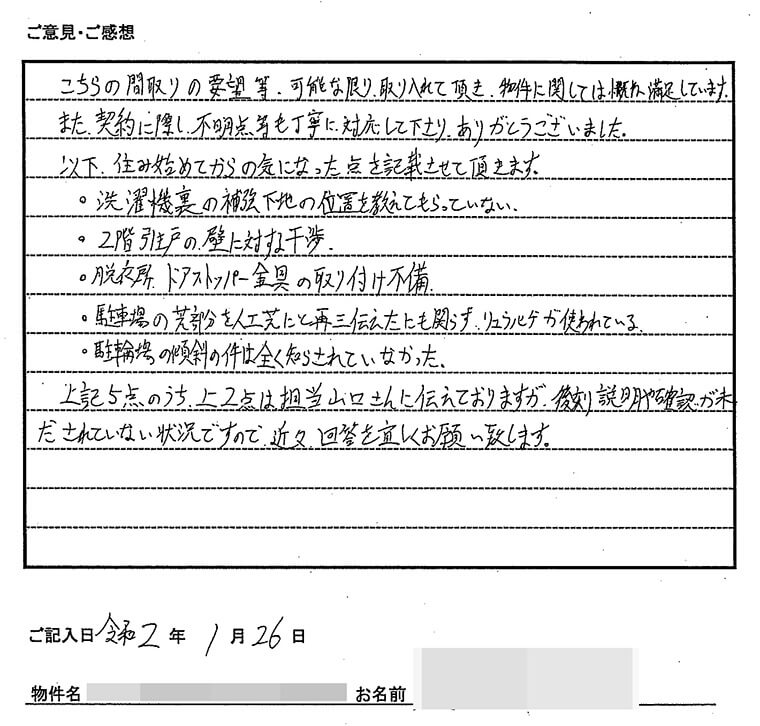 ご意見・ご感想
こちらの間取りの要望等、可能な限り、取り入れて頂き、物件に関しては概ね満足しています。
また、契約に際し、不明点等も丁寧に対応して下さり、ありがとうございました。
以下、住み始めてからの気になった点を記載させて頂きます。
・洗濯機裏の補強下地の位置を教えてもらっていない。
・2階引き戸の、壁に対する干渉。
・脱衣所、ドアストッパー金具の取り付け不備。
・駐車場の芝部分を人工芝にと再三伝えたにも関らず、リュウノヒゲが使われている。
・駐輪場の傾斜の件は全く知らされていなかった。
上記5点のうち、上2点は担当山口さんに伝えておりますが、後刻説明や確認が未
だされていない状況ですので、近々、回答を宜しくお願い致します。
ご記入日 令和2年 1月26日
物件名 お名前